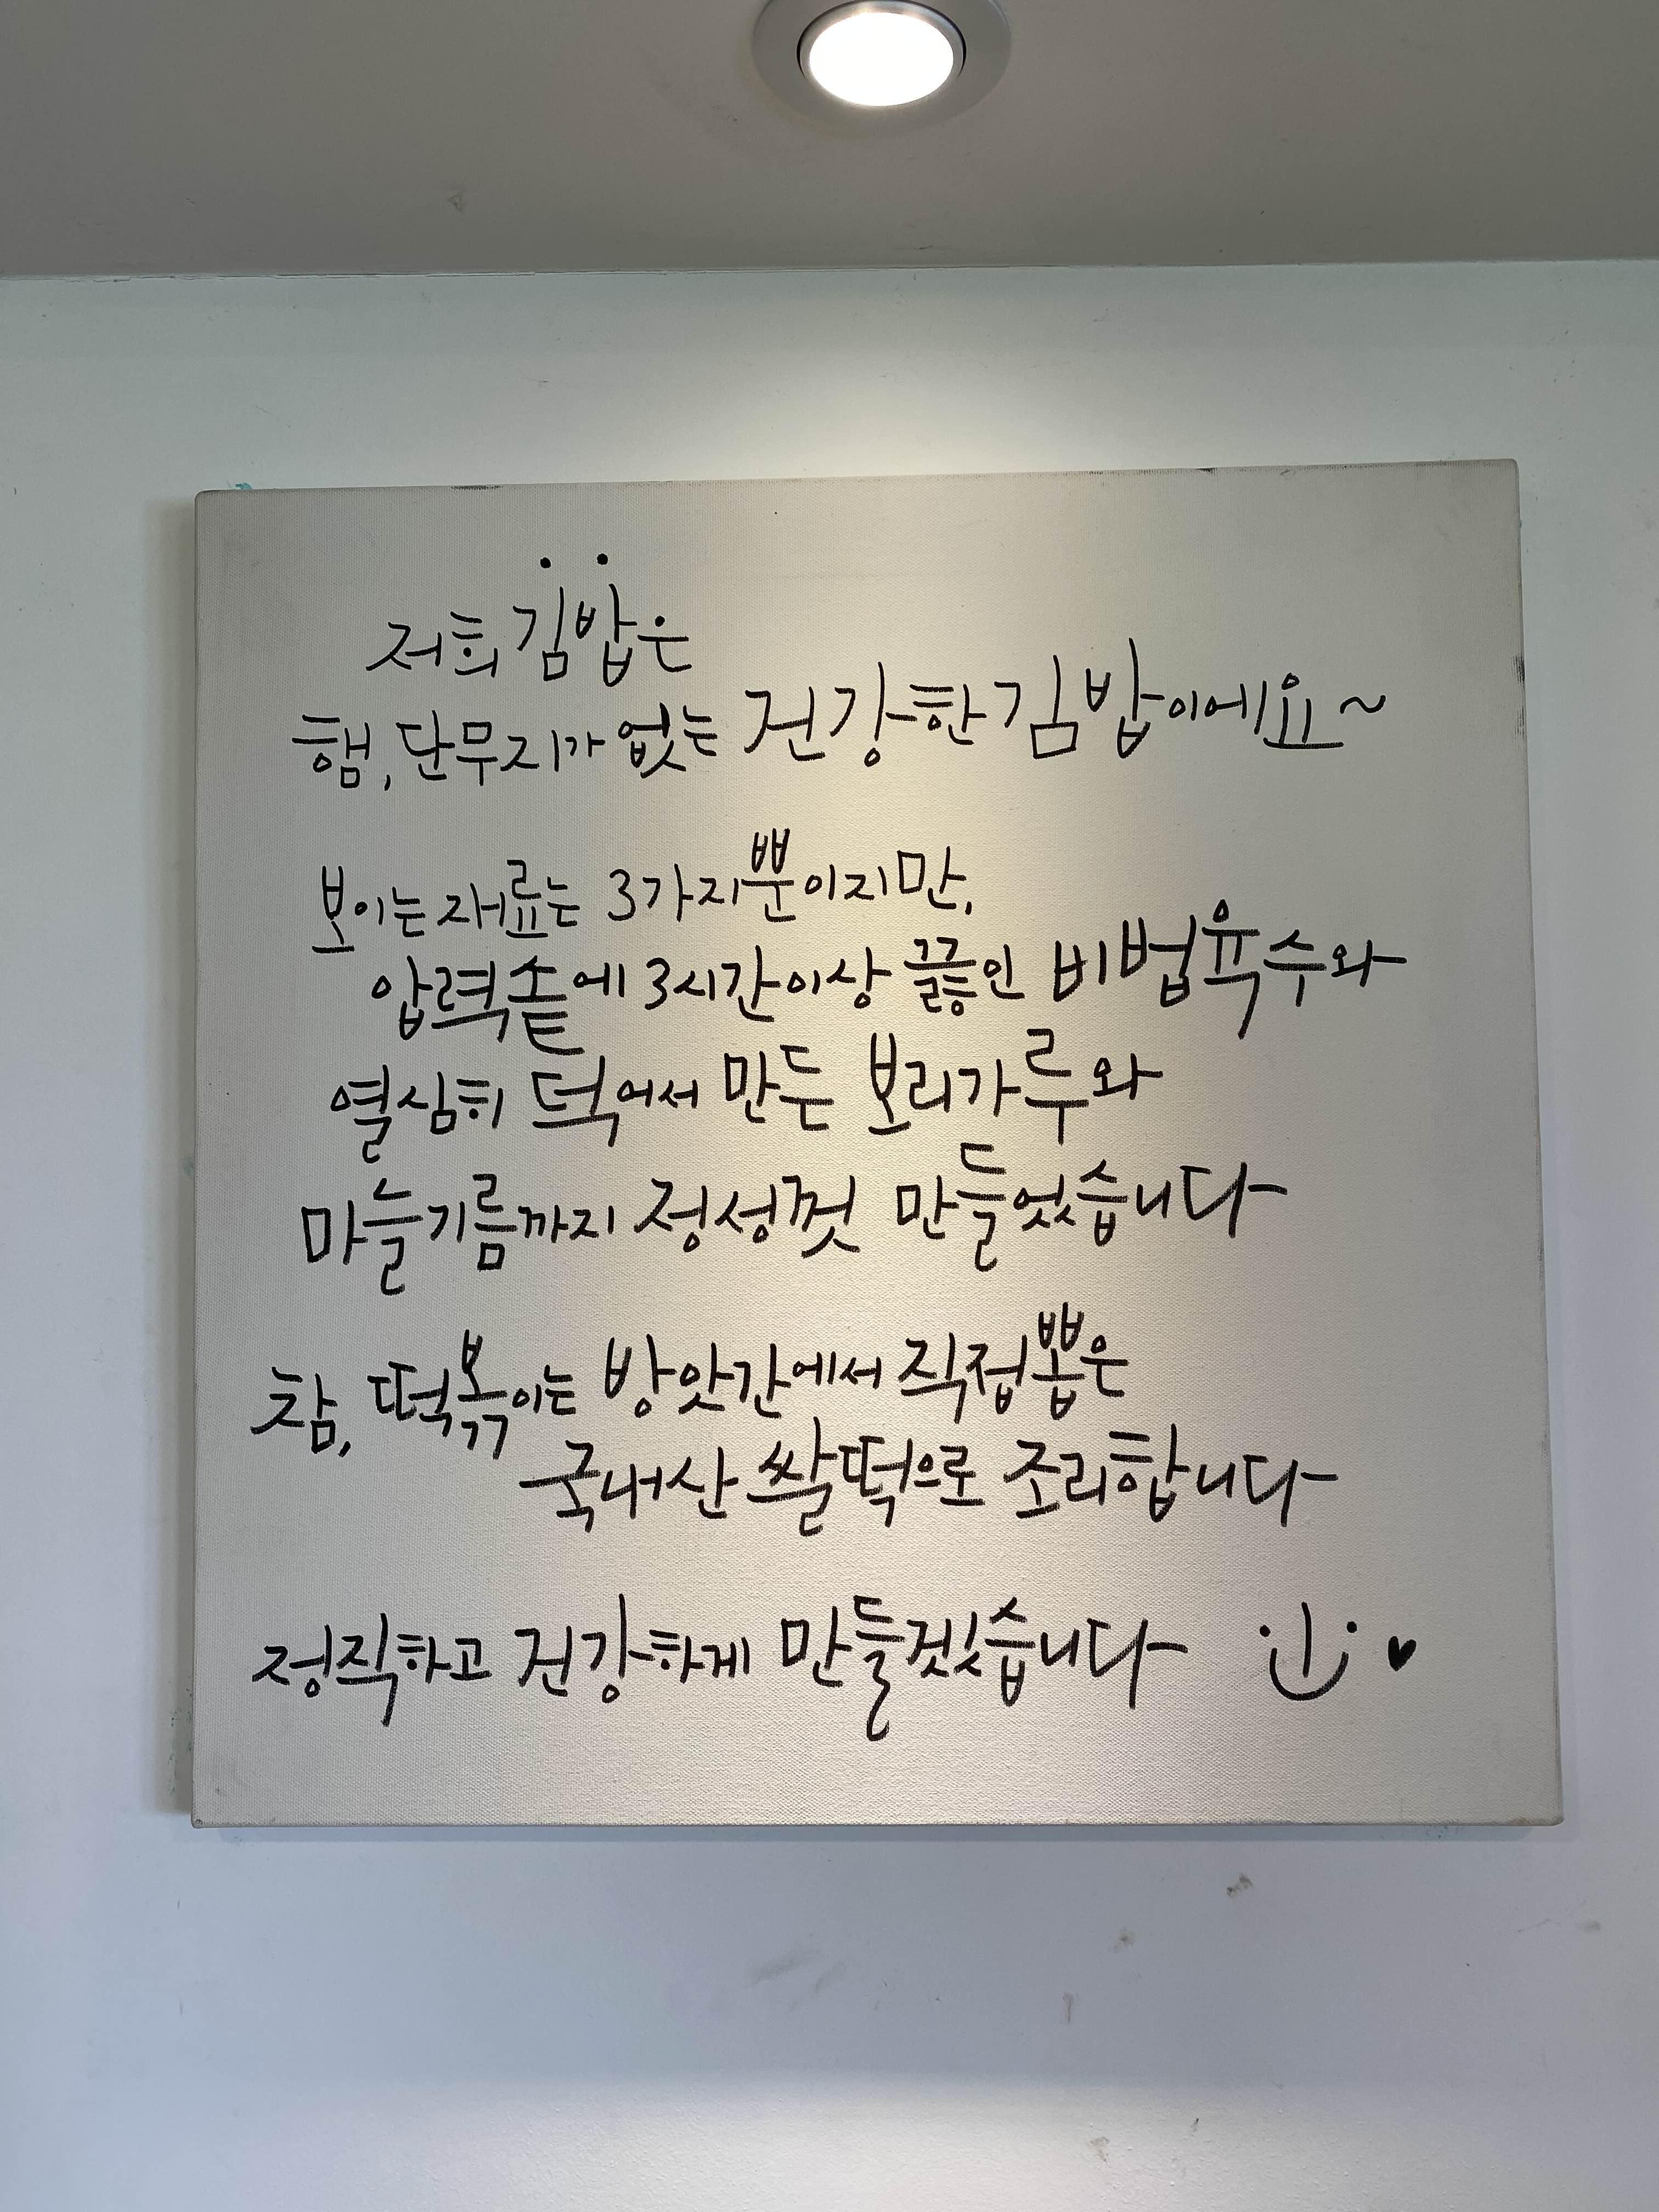 저희 김밥은
햄, 단무지가 없는 건강한 김밥이에요~
보이는 재료는 3가지뿐이지만,
압력솥에 3시간이상 끓인 비법육수와
열심히 덕어서 만든 보리가루와
마늘기름까지 정성껏 만들었습니다
참, 떡볶이는 방앗간에서 직접뽑은
국내산 쌀떡으로 조리합니다
정직하고 건강하게 만들겠습니다